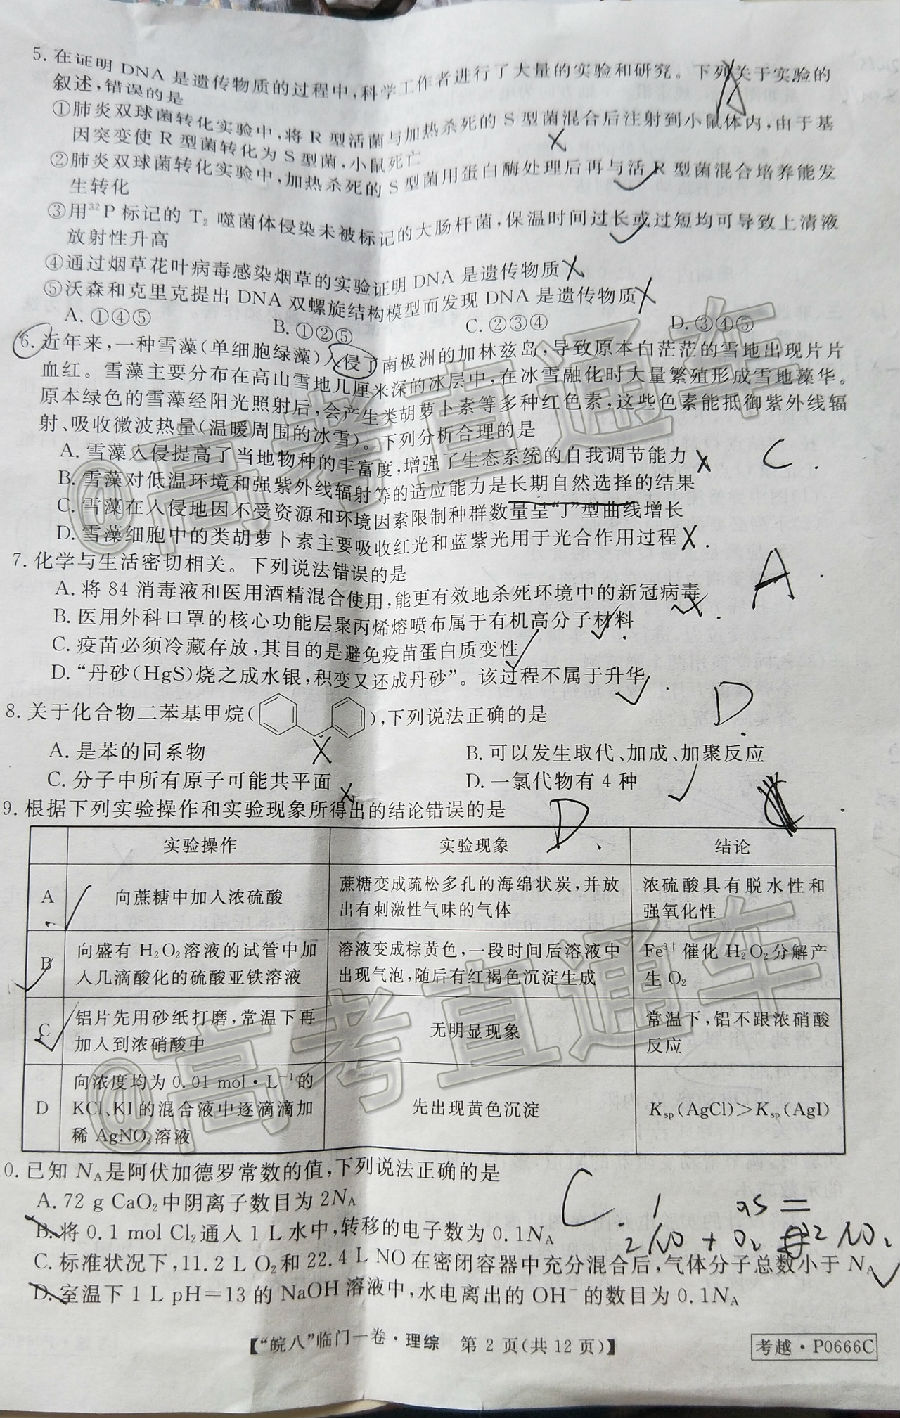 5. 在证明 DNA 是遗传物质的过程中,科学工作者进行了大量的实验和研究。下列关于实验的
叙述,错误的是
A
①肺炎双球菌转化实验中,将 R 型活菌与加热杀死的 S 型菌混合后注射到小鼠体内,由于基
因突变使 R 型菌转化为 S 型菌,小鼠死亡 ×
②肺炎双球菌转化实验中,加热杀死的 S 型菌用蛋白酶处理后再与活 R 型菌混合培养能发
生转化 ✓
③用³²P 标记的 T₂ 噬菌体侵染未被标记的大肠杆菌,保温时间过长或过短均可导致上清液
放射性升高 ✓
④通过烟草花叶病毒感染烟草的实验证明 DNA 是遗传物质 ×
⑤沃森和克里克提出 DNA 双螺旋结构模型而发现 DNA 是遗传物质 ×
A. ①④⑤ B. ①②⑤ C. ②③④ D. ③④⑤
6. 近年来,一种雪藻(单细胞绿藻)入侵了南极洲的加林兹岛,导致原本白茫茫的雪地出现片片
血红。雪藻主要分布在高山雪地几厘米深的冰层中,在冰雪融化时大量繁殖形成雪地藻华。
原本绿色的雪藻经阳光照射后,会产生类胡萝卜素等多种红色素,这些色素能抵御紫外线辐
射、吸收微波热量(温暖周围的冰雪)。下列分析合理的是
A. 雪藻入侵提高了当地物种的丰富度,增强了生态系统的自我调节能力 × C.
B. 雪藻对低温环境和强紫外线辐射等的适应能力是长期自然选择的结果
C. 雪藻在入侵地因不受资源和环境因素限制种群数量呈“J”型曲线增长
D. 雪藻细胞中的类胡萝卜素主要吸收红光和蓝紫光用于光合作用过程 ×.
7. 化学与生活密切相关。下列说法错误的是 A.
A. 将 84 消毒液和医用酒精混合使用,能更有效地杀死环境中的新冠病毒 ×
B. 医用外科口罩的核心功能层聚丙烯熔喷布属于有机高分子材料 ✓
C. 疫苗必须冷藏存放,其目的是避免疫苗蛋白质变性 ✓
D. “丹砂(HgS)烧之成水银,积变又还成丹砂”。该过程不属于升华 ✓
8. 关于化合物二苯基甲烷( ),下列说法正确的是 D
A. 是苯的同系物 × B. 可以发生取代、加成、加聚反应
C. 分子中所有原子可能共平面 × D. 一氯代物有 4 种 ✓
9. 根据下列实验操作和实验现象所得出的结论错误的是 D.
实验操作 实验现象 结论
A ✓ 向蔗糖中加入浓硫酸 蔗糖变成疏松多孔的海绵状炭,并放出有刺激性气味的气体 浓硫酸具有脱水性和强氧化性
B ✓ 向盛有 H₂O₂ 溶液的试管中加入几滴酸化的硫酸亚铁溶液 溶液变成棕黄色,一段时间后溶液中出现气泡,随后有红褐色沉淀生成 Fe³⁺ 催化 H₂O₂ 分解产生 O₂
C ✓ 铝片先用砂纸打磨,常温下再加入到浓硝酸中 无明显现象 常温下,铝不跟浓硝酸反应
D 向浓度均为 0.01 mol·L⁻¹ 的 KCl、KI 的混合液中逐滴滴加稀 AgNO₃ 溶液 先出现黄色沉淀 Ksp(AgCl)>Ksp(AgI)
0. 已知 Nᴀ 是阿伏加德罗常数的值,下列说法正确的是
A. 72 g CaO₂ 中阴离子数目为 2Nᴀ C. 1 0.5 =
B. 将 0.1 mol Cl₂ 通入 1 L 水中,转移的电子数为 0.1Nᴀ 2NO + O₂ 2NO₂
C. 标准状况下,11.2 L O₂ 和 22.4 L NO 在密闭容器中充分混合后,气体分子总数小于 Nᴀ ✓
D. 室温下 1 L pH=13 的 NaOH 溶液中,水电离出的 OH⁻ 的数目为 0.1Nᴀ
【“皖八”临门一卷·理综 第 2 页(共 12 页)】 考越·P0666C
@高考直通车
@高考直通车